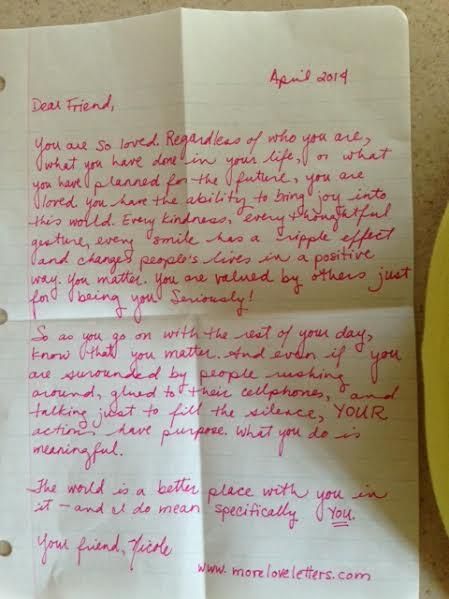 April 2014
Dear Friend,
You are so loved. Regardless of who you are,
what you have done in your life, or what
you have planned for the future, you are
loved. You have the ability to bring joy into
this world. Every kindness, every thoughtful
gesture, every smile has a ripple effect
and changes people's lives in a positive
way. You matter. You are valued by others just
for being you. Seriously!
So as you go on with the rest of your day,
know that you matter. And even if you
are surounded by people rushing
around, glued to their cellphones, and
talking just to fill the silence, YOUR
actions have purpose. What you do is
meaningful.
The world is a better place with you in
it - and I do mean specifically YOU.
Your friend, Nicole
www.moreloveletters.com